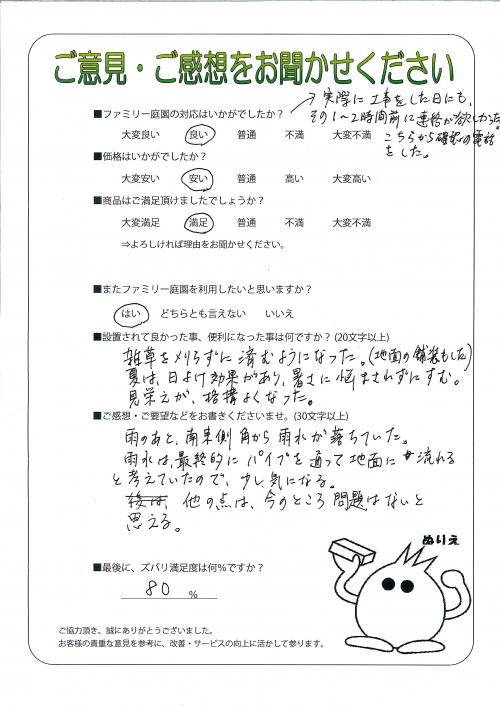 ご意見・ご感想をお聞かせください
■ファミリー庭園の対応はいかがでしたか?
→実際に工事をした日にも、
その1〜2時間前に連絡が欲しかった。
こちらから確認の電話
をした。
大変良い 良い 普通 不満 大変不満
■価格はいかがでしたか?
大変安い 安い 普通 高い 大変高い
■商品はご満足頂けましたでしょうか?
大変満足 満足 普通 不満 大変不満
⇒よろしければ理由をお聞かせください。
■またファミリー庭園を利用したいと思いますか?
はい どちらとも言えない いいえ
■設置されて良かった事、便利になった事は何ですか? (20文字以上)
雑草を刈らずに済むようになった。(地面の舗装もした)
夏は、日よけ効果があり、暑さに悩まされずにすむ。
見栄えが、格構よくなった。
■ご感想・ご要望などをお書きくださいませ。(30文字以上)
雨のあと、南東側角から雨水が落ちていた。
雨水は、最終的にパイプを通って地面に流れる
と考えていたので、少し気になる。
他の点は、今のところ問題はないと
思える。
ぬりえ
■最後に、ズバリ満足度は何%ですか?
80 %
ご協力頂き、誠にありがとうございました。
お客様の貴重な意見を参考に、改善・サービスの向上に活かして参ります。